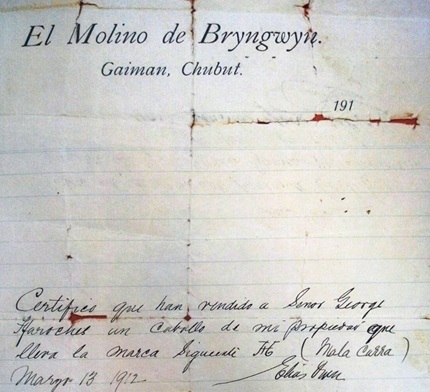 El Molino de Bryngwyn.
Gaiman, Chubut.
191
Certifico que han vendido a Senor George
un Caballo de mi propiedad que
lleva la marca Siguiente (Mala Carra)
Marzo 13 1912 Elias Owen